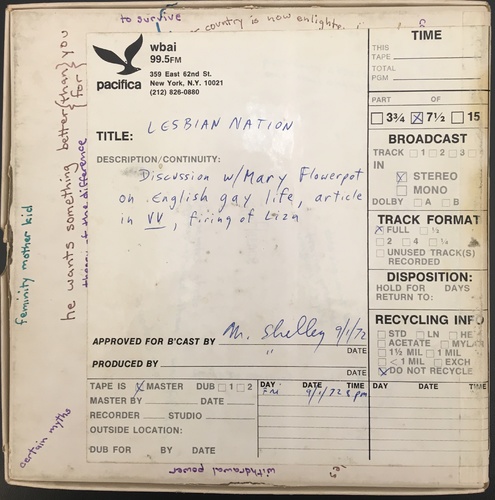 to survive
country is now enlighte
he wants something better {than} you
{for}
theory of the difference
feminity mother kid
certain myths
withdrawal power
pacifica
wbai
99.5FM
359 East 62nd St.
New York, N.Y. 10021
(212) 826-0880
TITLE: LESBIAN NATION
DESCRIPTION/CONTINUITY:
Discussion w/Mary Flowerpot
on English gay life, article
in VV, firing of Liza
APPROVED FOR B'CAST BY M. Shelley 9/1/72
DATE
PRODUCED BY "
DATE
TAPE IS X MASTER DUB 1 2
MASTER BY DATE
RECORDER STUDIO
OUTSIDE LOCATION:
DUB FOR BY DATE
DAY DATE TIME
FRI 9/1/72 8 pm
TIME
THIS
TAPE
TOTAL
PGM
PART OF
3¾ X 7½ 15
BROADCAST
TRACK 1 2 3
IN
STEREO
MONO
DOLBY A B
TRACK FORMAT
X FULL ½
2 4 ¼
UNUSED TRACK(S)
RECORDED
DISPOSITION:
HOLD FOR DAYS
RETURN TO:
RECYCLING INFO
STD LN HE
ACETATE MYLA
1½ MIL 1 MIL
< 1 MIL EXCH
X DO NOT RECYCLE
DAY DATE TIME